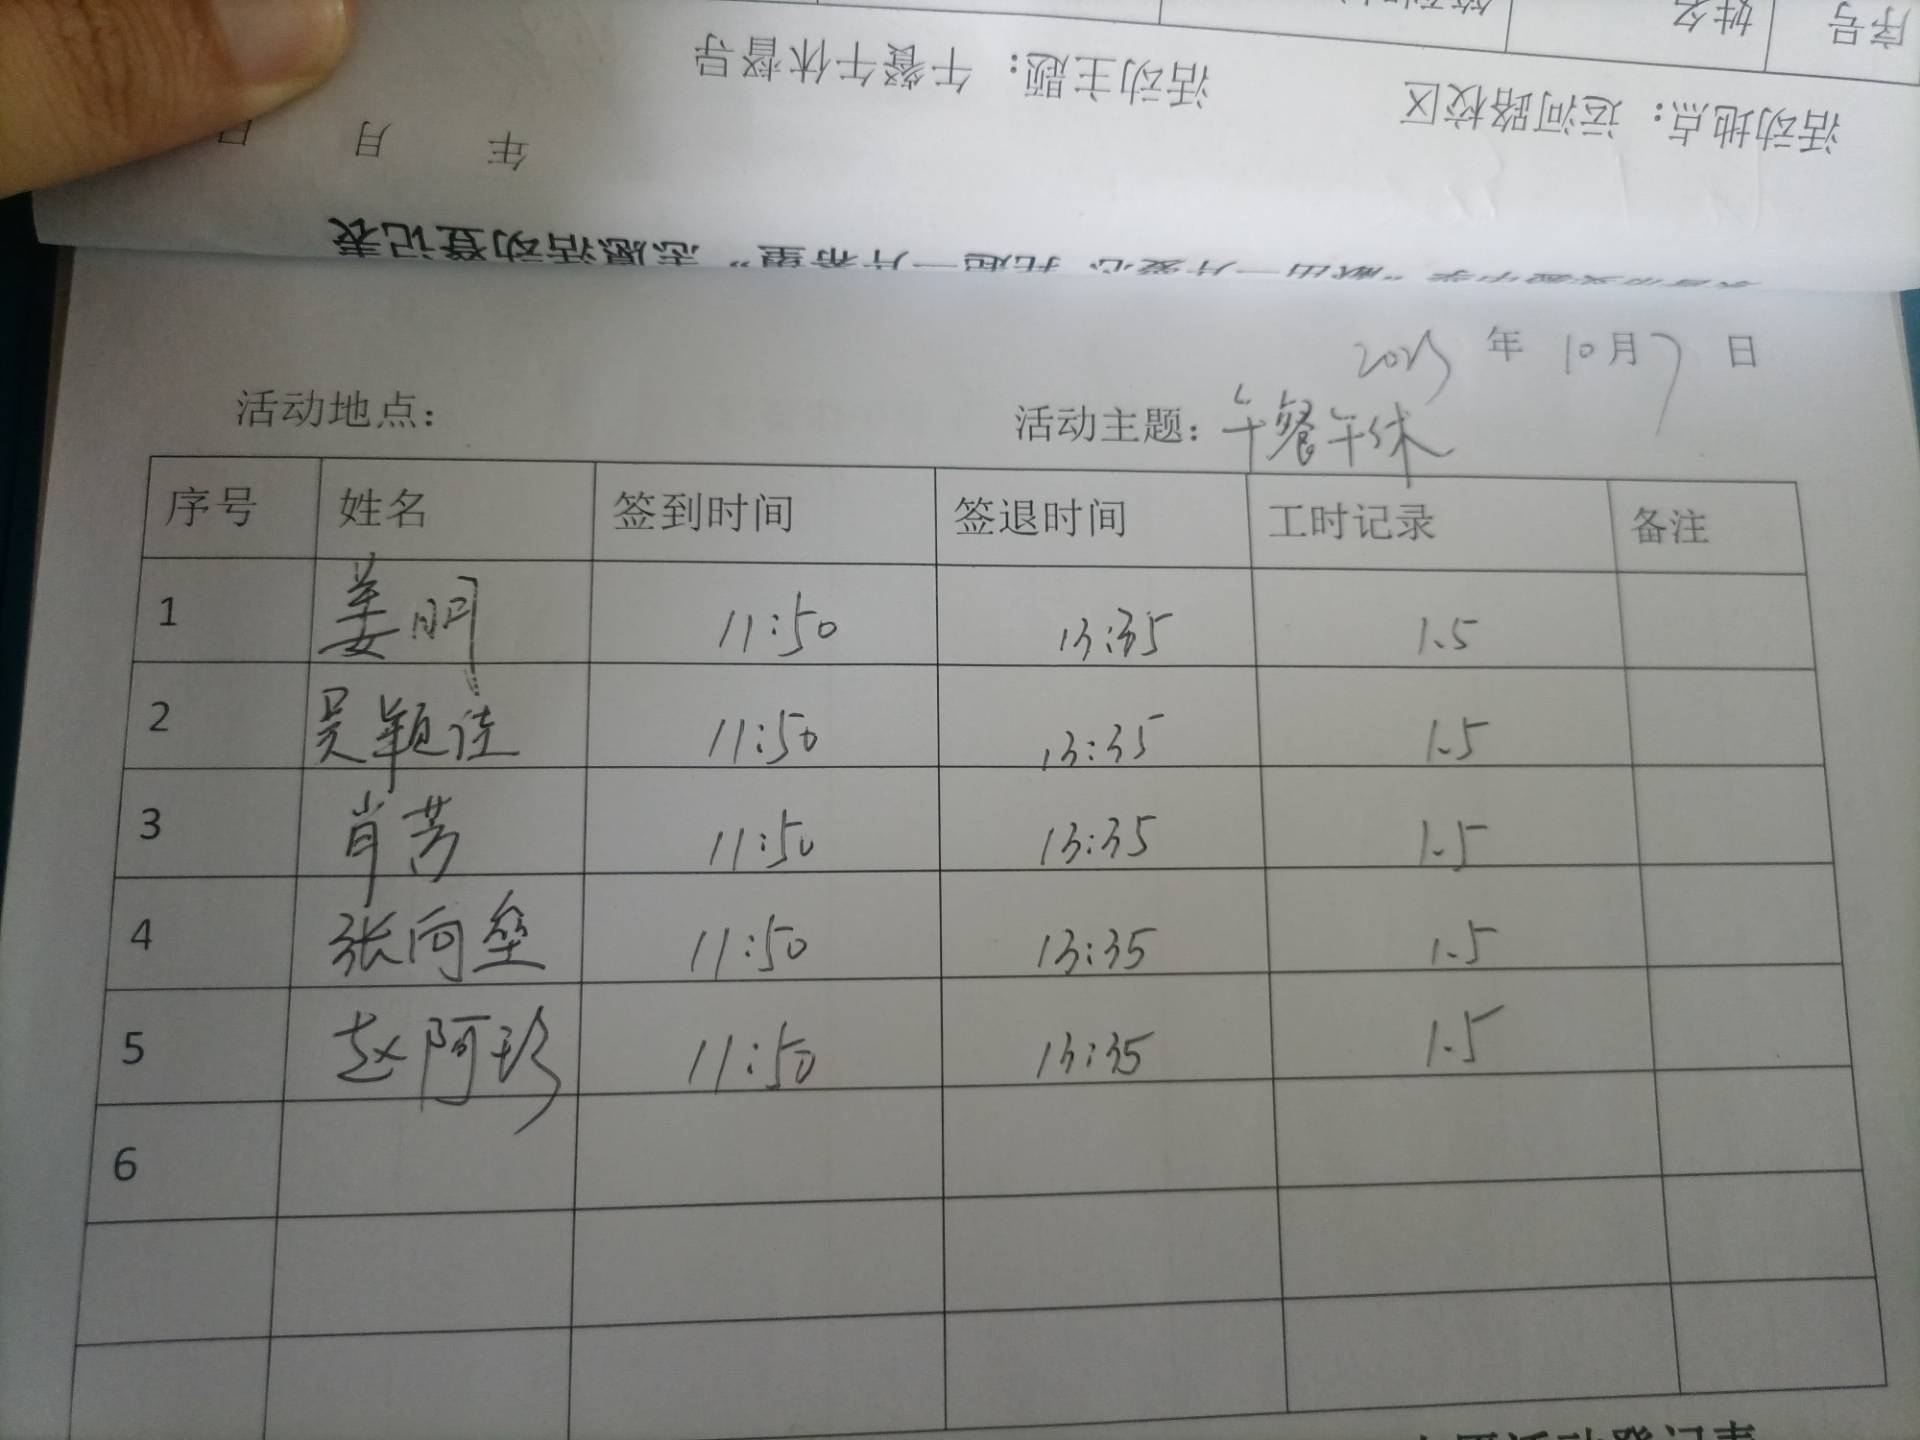 序号 姓名
活动地点：运河路校区 活动主题：午餐午休督导
年 月 日
“献出一片爱心 托起一片希望”志愿活动登记表
2023 年 10 月 7 日
活动地点： 活动主题：午餐午休
序号 姓名 签到时间 签退时间 工时记录 备注
1 姜明 11:50 13:35 1.5
2 吴颖佳 11:50 13:35 1.5
3 肖芳 11:50 13:35 1.5
4 张向垒 11:50 13:35 1.5
5 赵阿珍 11:50 13:35 1.5
6
活动登记表